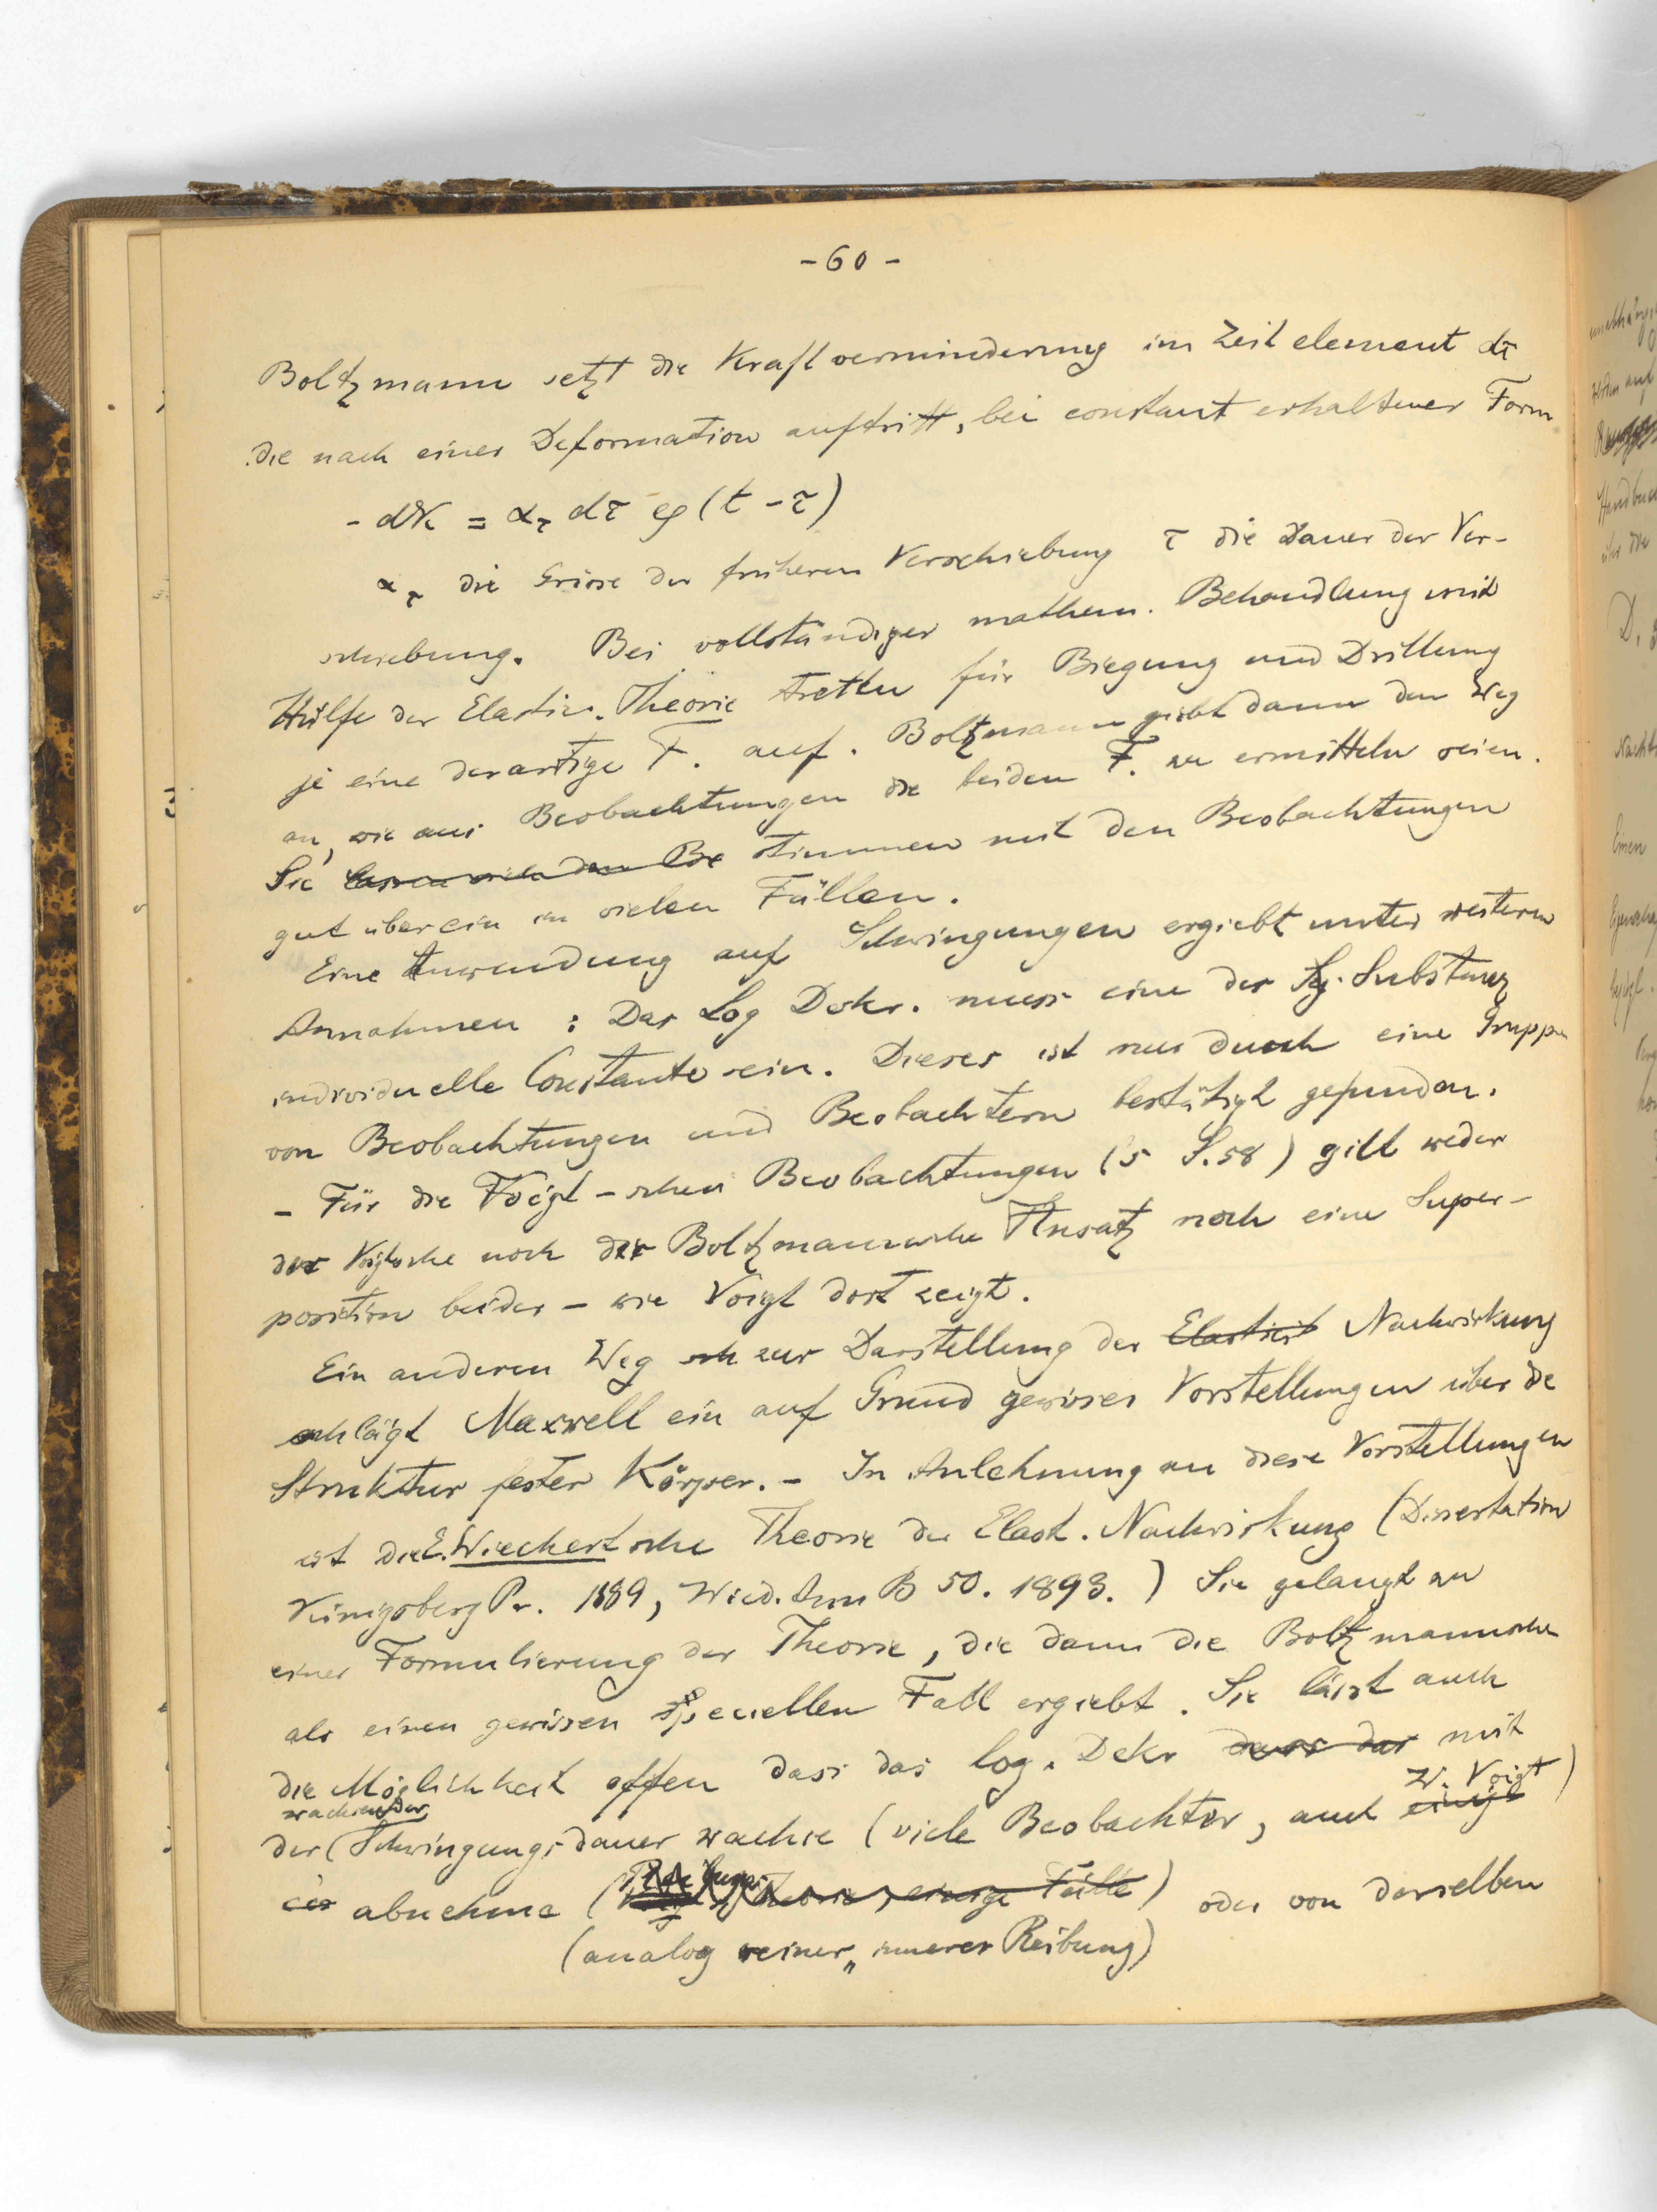 - 60 -
Boltzmann setzt die Kraftverminderung im Zeitelement dτ
die nach einer Deformation auftritt, bei constant erhaltener Form
- dK = α_τ dτ φ(t - τ)
α_τ die Grösse der früheren Verschiebung τ die Dauer der Ver-
schiebung. Bei vollständiger mathem. Behandlung mit
Hülfe der Elastic. Theorie treten für Biegung und Drillung
je eine derartige F. auf. Boltzmann giebt dann den Weg
an, wie aus Beobachtungen die beiden F. zu ermitteln seien.
Sie stimmen mit den Beobachtungen
gut überein in vielen Fällen.
Eine Anwendung auf Schwingungen ergiebt unter weiteren
Annahmen : Das Log Dekr. muss eine der Substanz
individuelle Constante sein. Dieses ist nur durch eine Gruppe
von Beobachtungen und Beobachtern bestätigt gefunden.
- Für die Voigt-schen Beobachtungen (s S. 58) gilt weder
der Voigtsche noch der Boltzmannsche Ansatz noch eine Super-
position beider - wie Voigt dort zeigt.
Ein anderen Weg zur Darstellung der Elasticit Nachwirkung
schlägt Maxwell ein auf Grund gewisser Vorstellungen über die
Struktur fester Körper. - In Anlehnung an diese Vorstellungen
ist die E. Wiechertsche Theorie der Elast. Nachwirkung (Dissertation
Königsberg Pr. 1889, Wied. Ann B 50. 1893.) Sie gelangt zu
einer Formulierung der Theorie, die dann die Boltzmannsche
als einen gewissen speciellen Fall ergiebt. Sie lässt auch
die Möglichkeit offen dass das log. Dekr dass das mit
wachsender W. Voigt)
der (Schwingungsdauer wachse (viele Beobachter, auch einige
abnehme ( Theorie, einige Fälle) oder von derselben
(analog seiner „innerer Reibung)